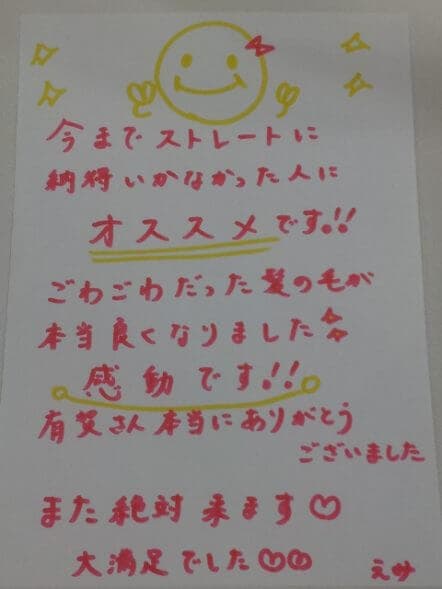 今までストレートに
納得いかなかった人に
オススメです!!
ごわごわだった髪の毛が
本当良くなりました
感動です!!
有賀さん本当にありがとう
ございました
また絶対来ます♡
大満足でした♡♡
えり